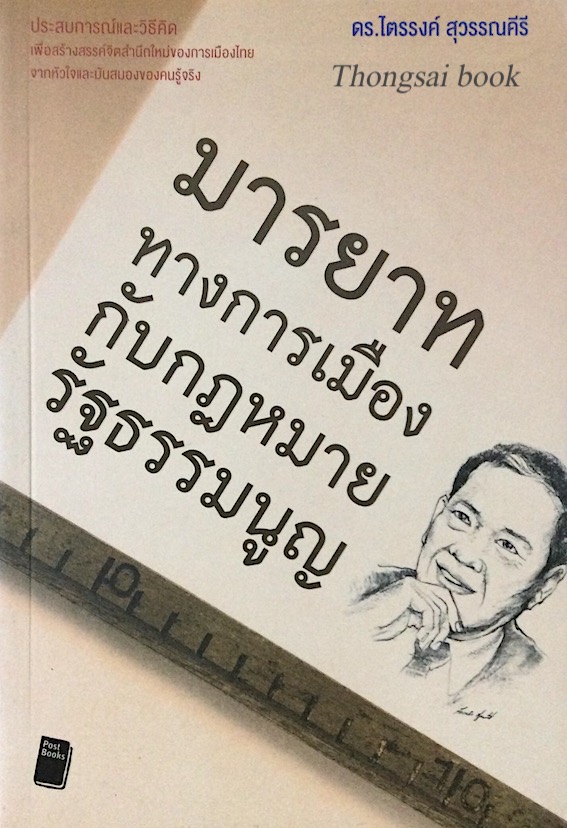 ประสบการณ์และวิธีคิด
เพื่อสร้างสรรค์จิตสำนึกใหม่ของการเมืองไทย
จากหัวใจและมันสมองของคนรู้จริง
ดร.ไตรรงค์ สุวรรณคีรี
Thongsai book
มารยาท
ทางการเมือง
กับกฎหมาย
รัฐธรรมนูญ
Post
Books